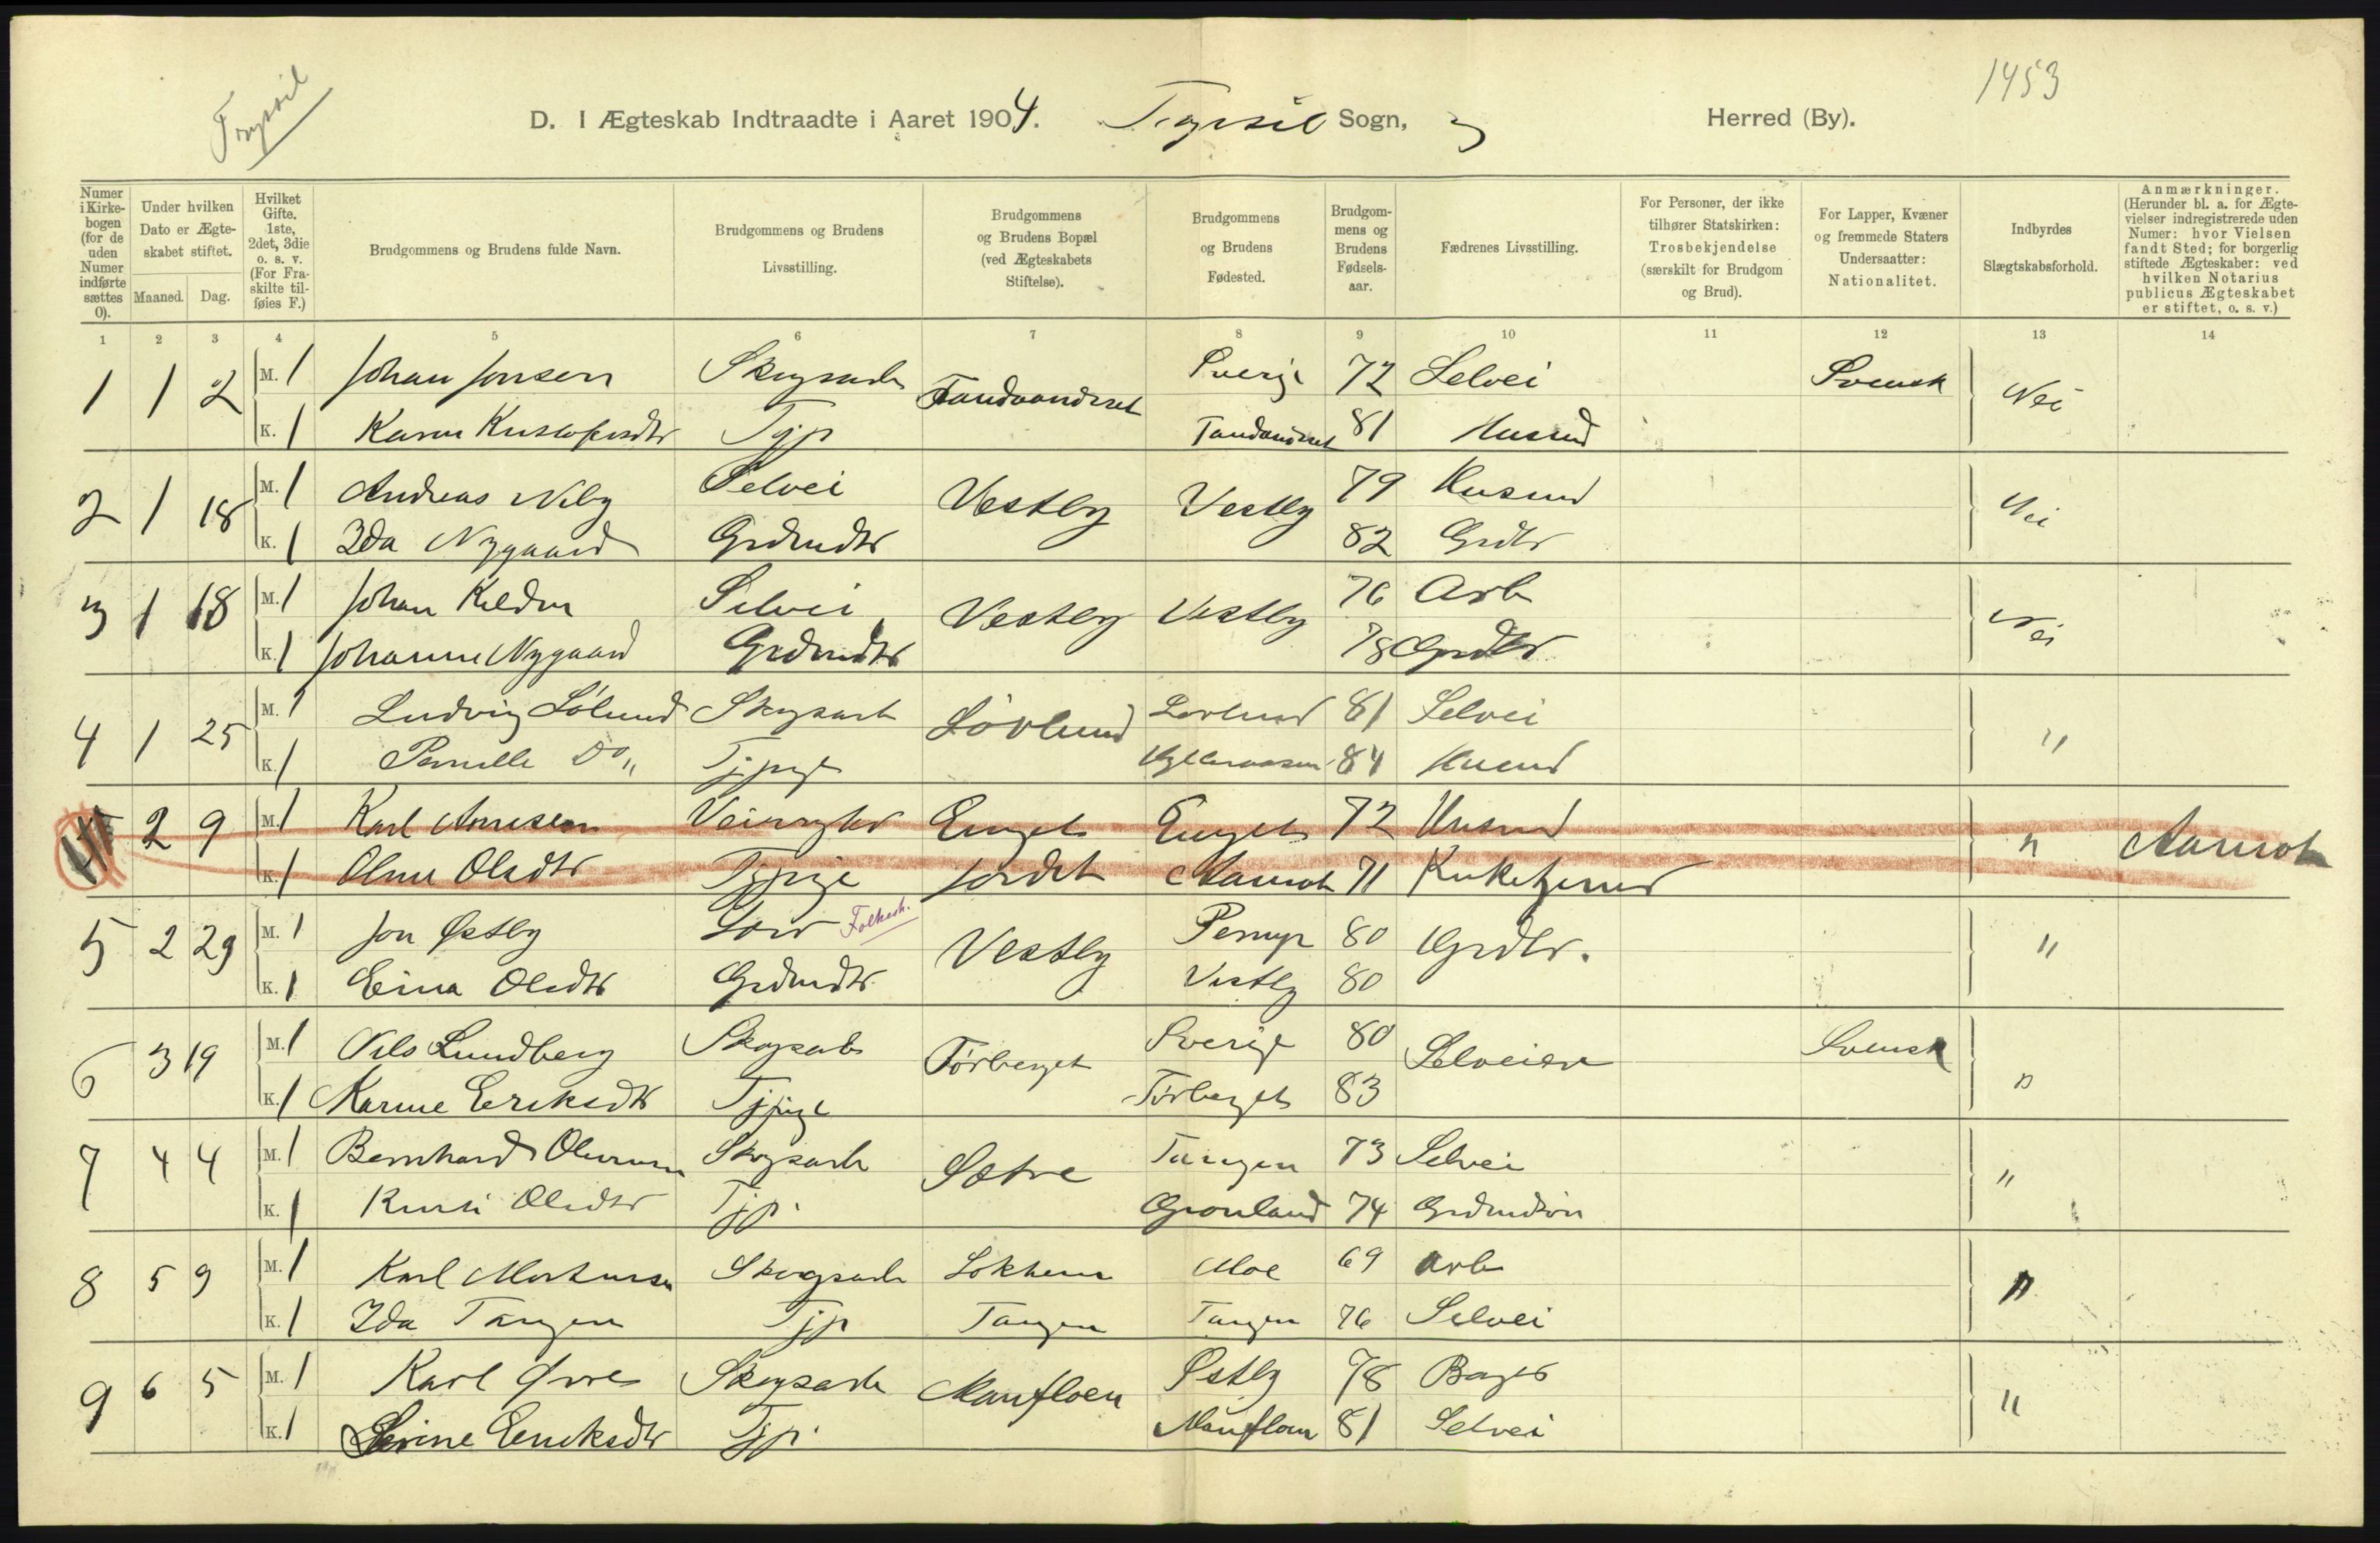 Trysil
1453
D. I Ægteskab Indtraadte i Aaret 1904. Trysil Sogn, Herred (By).
Numer i Kirkebogen (for de uden Numer indførte sættes 0).
Under hvilken Dato er Ægteskabet stiftet.
Maaned. Dag.
Hvilket Gifte. 1ste, 2det, 3die o. s. v. (For Fraskilte tilføies F.)
Brudgommens og Brudens fulde Navn.
Brudgommens og Brudens Livsstilling.
Brudgommens og Brudens Bopæl (ved Ægteskabets Stiftelse).
Brudgommens og Brudens Fødested.
Brudgommens og Brudens Fødselsaar.
Fædrenes Livsstilling.
For Personer, der ikke tilhører Statskirken: Trosbekjendelse (særskilt for Brudgom og Brud).
For Lapper, Kvæner og fremmede Staters Undersaatter: Nationalitet.
Indbyrdes Slægtskabsforhold.
Anmærkninger. (Herunder bl. a. for Ægtevielser indregistrerede uden Numer: hvor Vielsen fandt Sted; for borgerlig stiftede Ægteskaber: ved hvilken Notarius publicus Ægteskabet er stiftet, o. s. v.)
1 2 3 4 5 6 7 8 9 10 11 12 13 14
1 1 2 M. 1 Johan Jonsen Skogsarb Tandaandset Sverige 72 Selvei Svensk Nei
K. 1 Karen Tjp 81 Husmd
2 1 18 M. 1 Andreas Neby Selvei Vestby Vestby 79 Husmd Nei
K. 1 Ida Nygaard Grdmdtr 82 Grdbr
3 1 18 M. 1 Johan Selvei Vestby Vestby 76 Arb Nei
K. 1 Johanne Nygaard Grdmdtr 78 Grdbr
4 1 25 M. 1 Ludvig Lölund Skogsarb Lövlund Lovlund 81 Selvei "
K. 1 Pernille Do " Tjpige 84 Husmd
2 9 M. 1 Karl Arnesen Enget Enget 72 Husmd " Aamot
K. 1 Oline Olsdtr Tjpige Jordet Aamot 71 Kirketjener
5 2 29 M. 1 Jon Østby Lær Folkesk. Vestby 80 Grdbr. "
K. 1 Eina Olsdtr Grdmdtr Vestby 80
6 3 19 M. 1 Nils Lundberg Skogsarb Törberget Sverige 80 Selveiere Svensk "
K. 1 Karine Eriksdtr Tjpige Törberget 83
7 4 4 M. 1 Bernhard Skogsarb Sætre Tangen 73 Selvei "
K. 1 Kirsti Olsdtr Tjp. Gronland 74 Grdmdsön
8 5 9 M. 1 Karl Mortensen Skogsarb Moe 69 Arb "
K. 1 Ida Tangen Tjp Tangen Tangen 76 Selvei
9 6 5 M. 1 Karl Skogsarb Manfloen Østby 78 "
K. 1 Serine Eriksdtr Tjp. Manfloen 81 Selvei